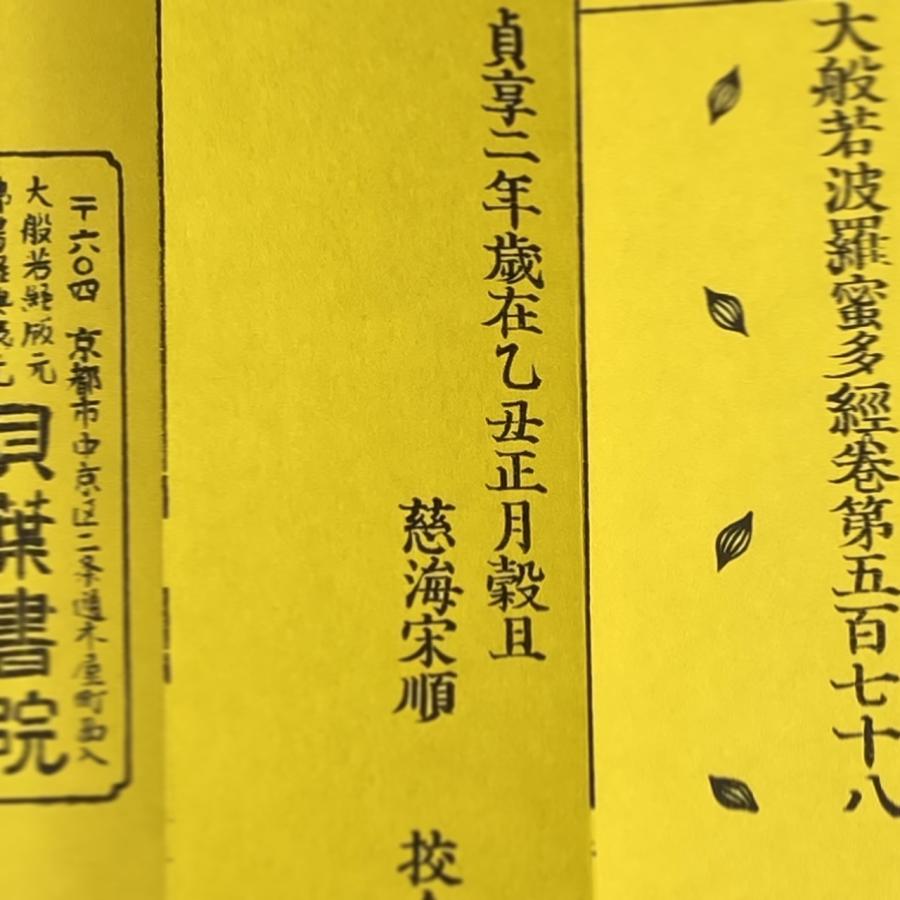 大般若波羅蜜多經卷第五百七十八
貞享二年歳在乙丑正月穀且
慈海宋順 挍
〒六〇四 京都市中京区二条通木屋町西入
大般若経版元
貝葉書院